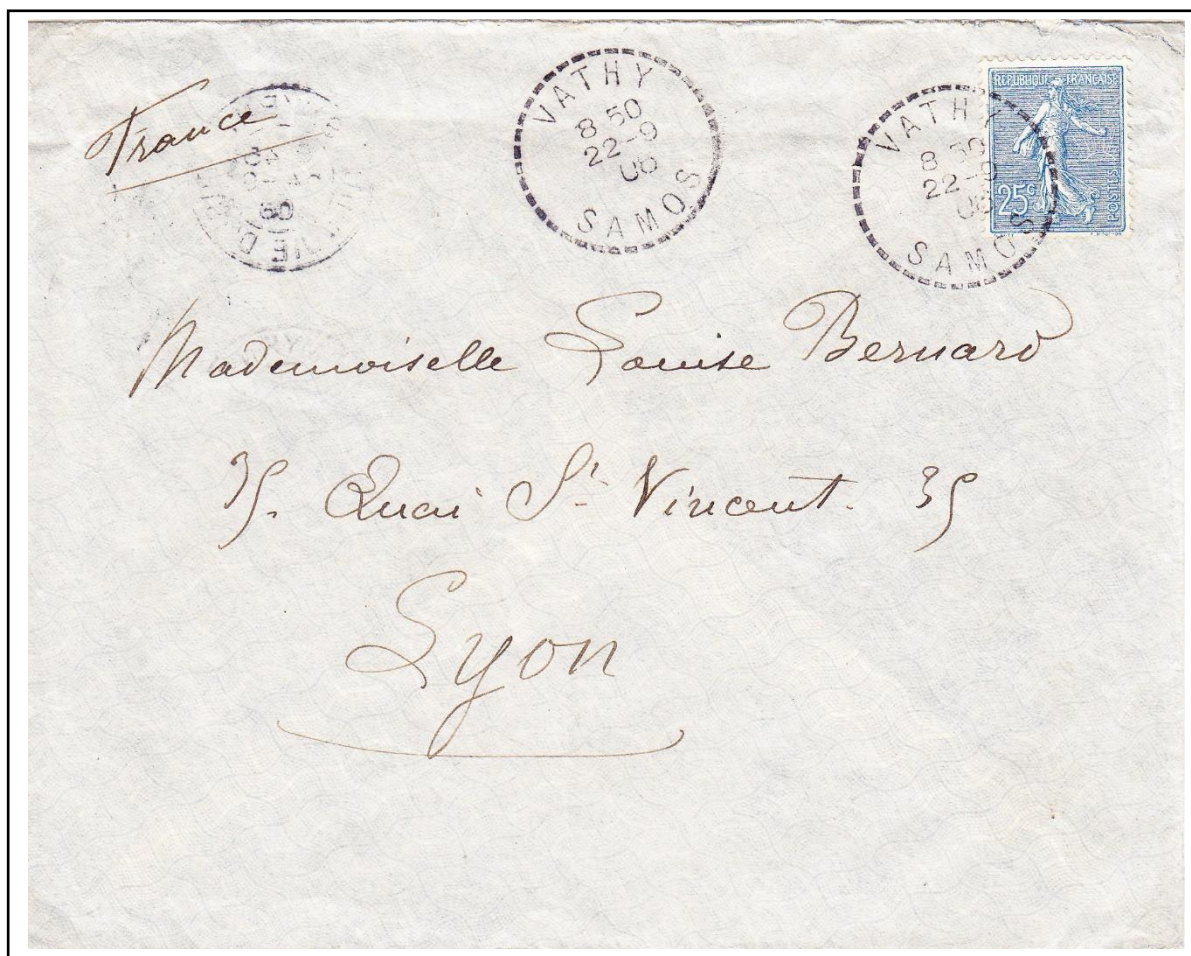 France
VATHY
8 50
22-9
06
SAMOS
VATHY
8 50
22-9
06
SAMOS
REPUBLIQUE FRANÇAISE
25c
POSTES
Mademoiselle Louise Bernard
35. Quai St Vincent. 35
Lyon